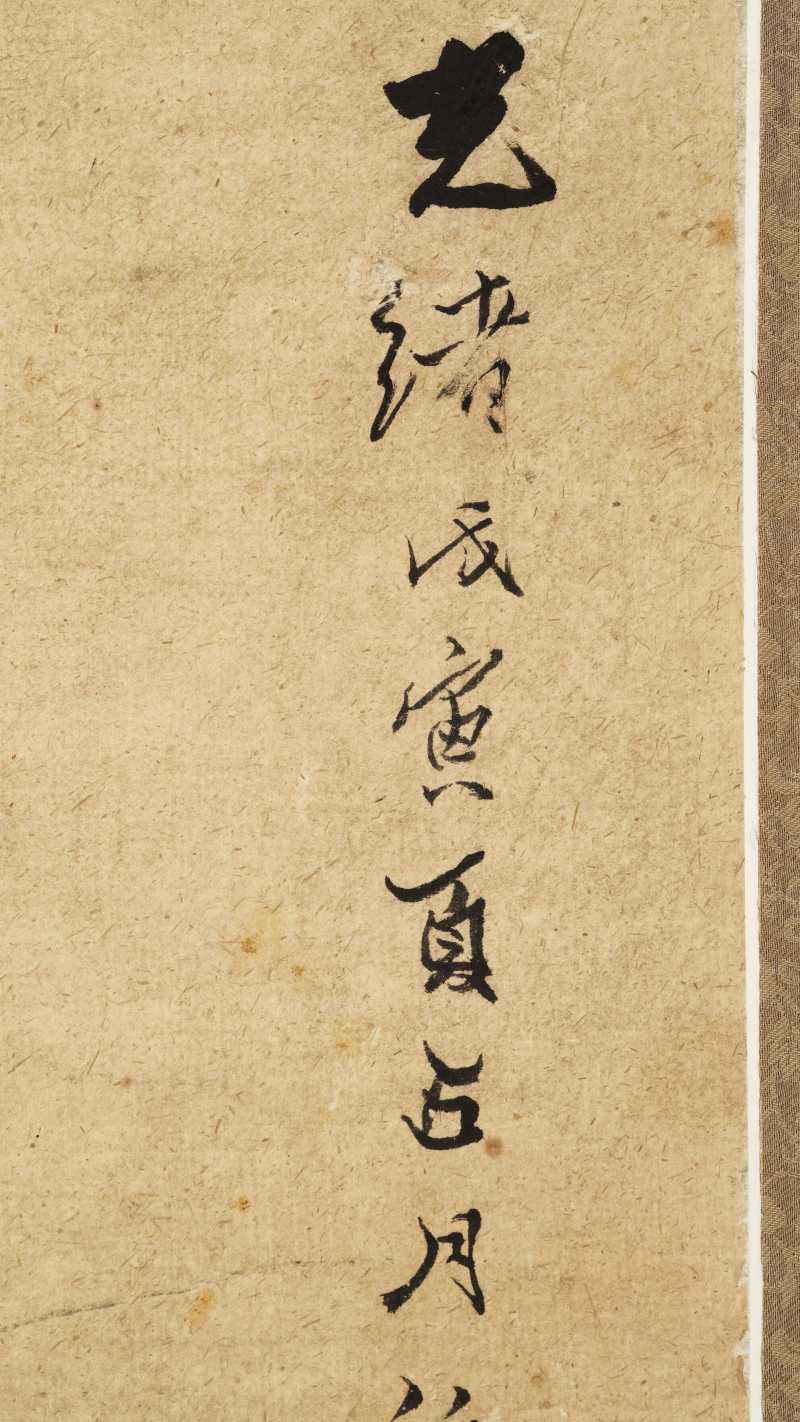 光緒戊寅夏五月